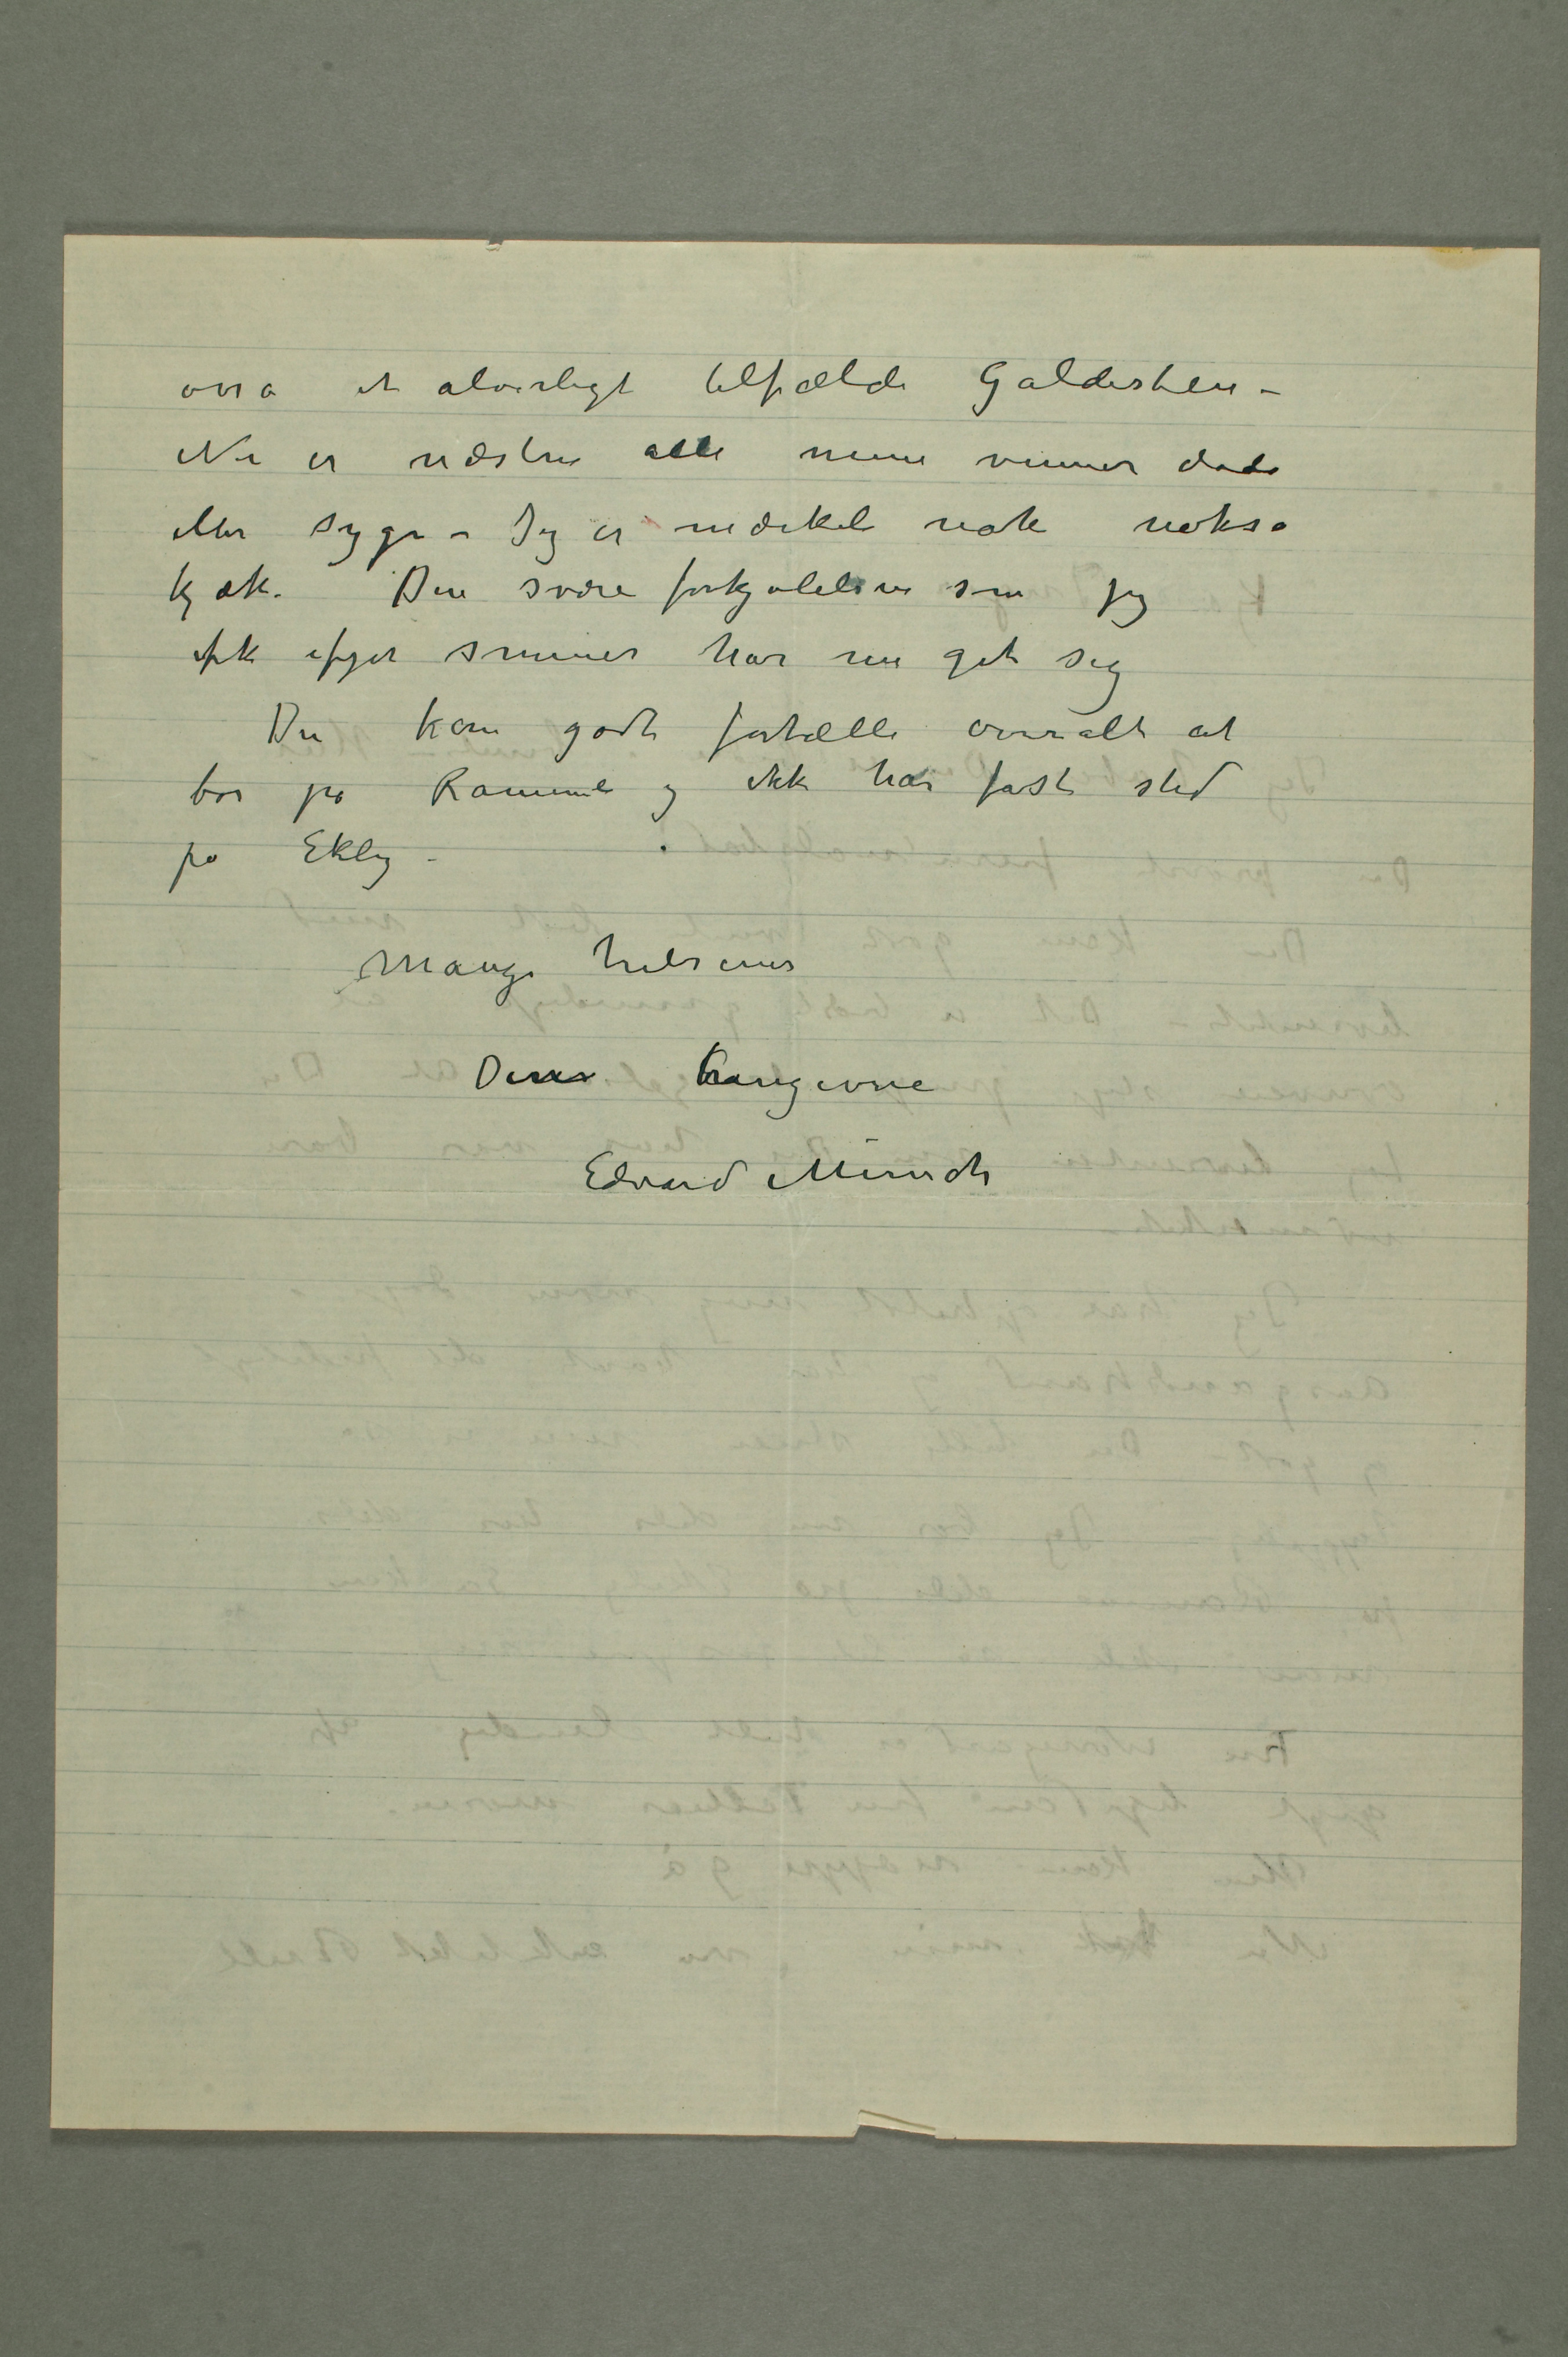 ossa et alverligt tilfælde Galdesten –
Nu er næsten alle mine venner døde
eller syge – Jeg er mærkeli nok nokså
kjæk. Den svære forkjølelsen som jeg
fik ifjor sommer har nu git sig
Du kan godt fortælle overalt at
bor på Ramme og ikke har fast sted
på Ekely –
Mange hilsener
Deres hengivne
Edvard Munch